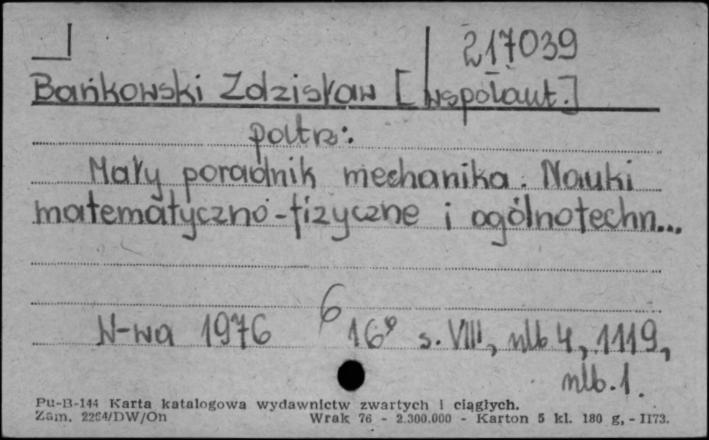 217039
Bańkowski Zdzisław [współaut.]
patrz:
Mały poradnik mechanika. Nauki
matematyczno-fizyczne i ogólnotechn...
W-wa 1976 6 16° s. VIII, nlb 4, 1119,
nlb. 1.
Pu-B-144 Karta katalogowa wydawnictw zwartych i ciągłych.
Zam. 2264/DW/On Wrak 76 - 2.300.000 - Karton 5 kl. 180 g, - II73.